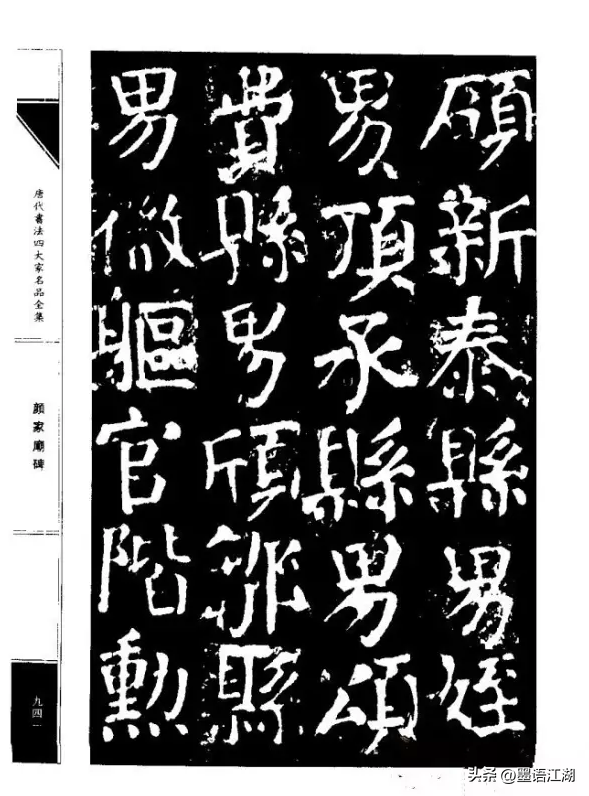 願新泰縣男姪
男頂承縣男頌
費縣男頎鄒縣
男微軀官階勳
唐代書法四大家名品全集
顏家廟碑
九四一
头条 @墨语江湖